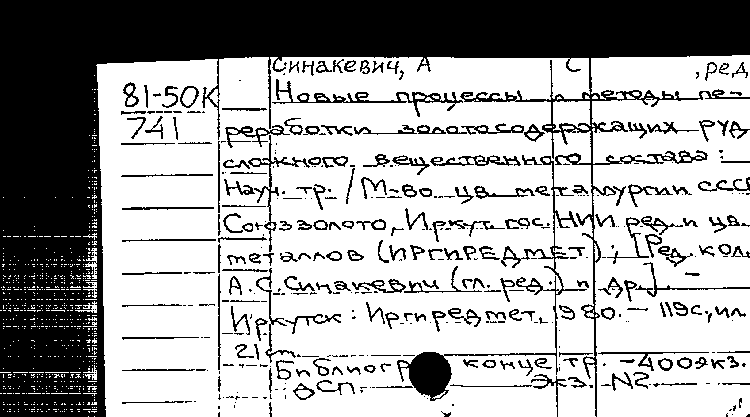 Синакевич, А С , ред
81-50К Новые процессы и методы пе-
741 реработки золотосодержащих руд
сложного вещественного состава:
Науч. тр. / М-во цв. металлургии ССС
Союззолото, Иркут. гос. НИИ ред. и цв.
металлов (ИРГИРЕДМЕТ); [Ред. кол.
А.С. Синакевич (гл. ред.) и др.]. –
Иркутск: Иргиредмет, 1980. – 119с, ил
21 см.
Библиогр конце тр. – 400экз.
ДСП. Экз. N2.